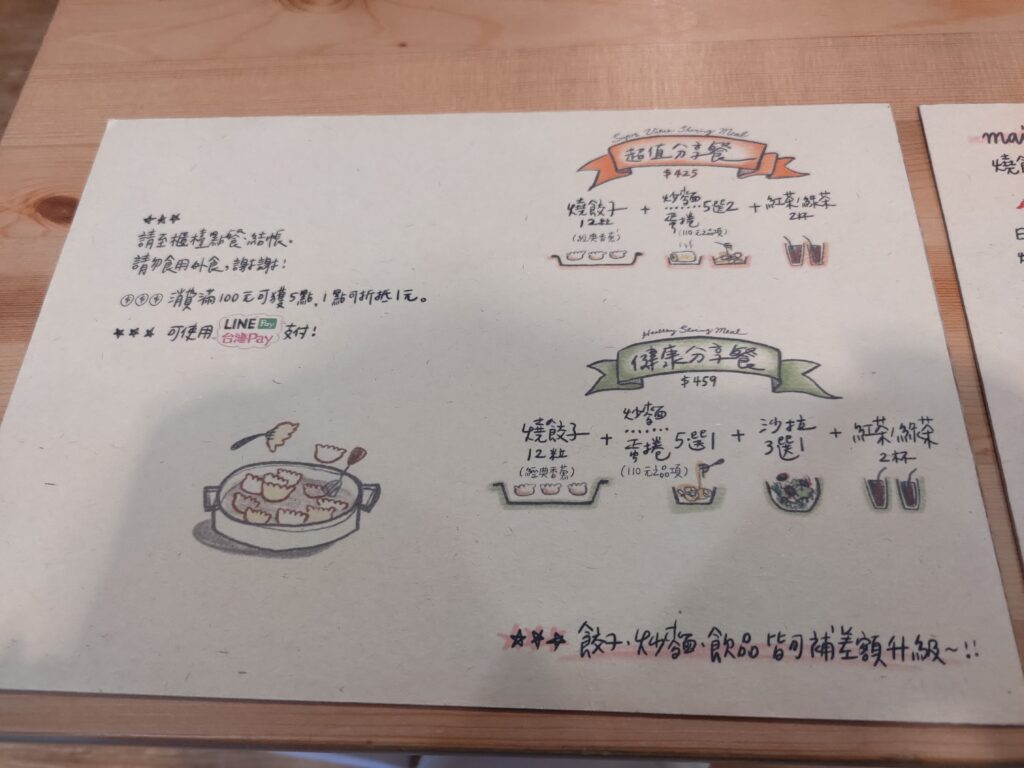 ★★★
請至櫃檯點餐、結帳、
請勿食用外食,謝謝!
消費滿100元可獲5點,1點可折抵1元。
★★★ 可使用 LINE Pay 台灣Pay 支付!
Super Value Sharing Meal
超值分享餐
$425
燒餃子 12粒 (經典香蔥) + 炒麵 蛋捲 5選2 (110元品項) + 紅茶/綠茶 2杯
Healthy Sharing Meal
健康分享餐
$459
燒餃子 12粒 (經典香蔥) + 炒麵 蛋捲 5選1 (110元品項) + 沙拉 3選1 + 紅茶/綠茶 2杯
★★★ 餃子、炒麵、飲品皆可補差額升級~!!
mai
燒餃